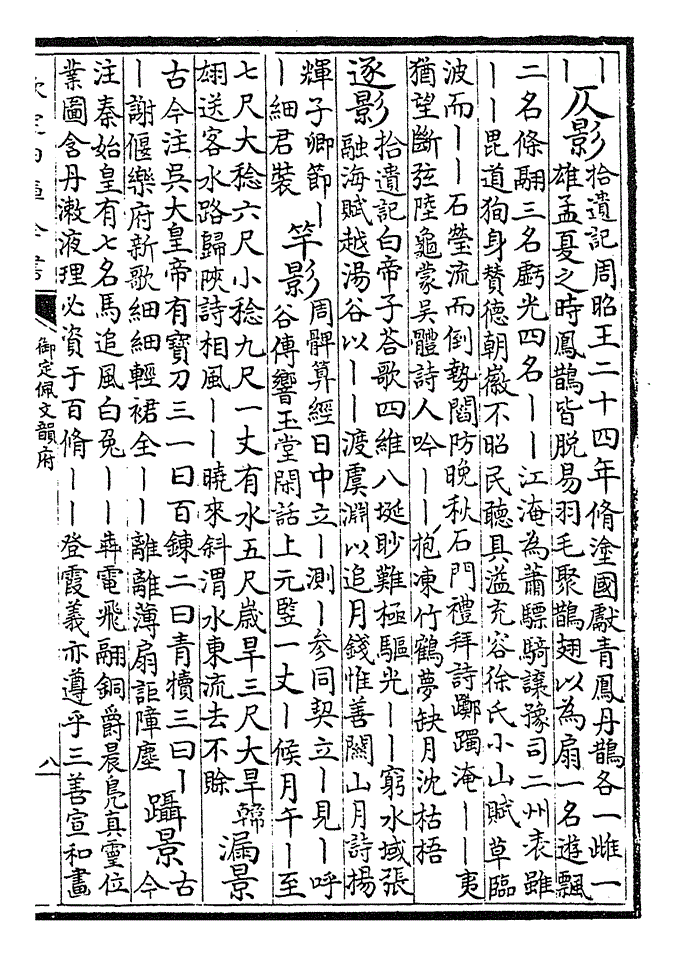 丨
丨
仄影
拾遺記周昭王二十四年脩塗國獻青鳳丹鵲各一雌一
雄孟夏之時鳳鵲皆脱易羽毛聚鵲翅以為扇一名遊飄
二名條翮三名虧光四名丨丨江淹為蕭驃騎讓豫司二州表雖
丨丨毘道狥身賛德朝徽不昭民聽具溢充容徐氏小山賦草臨
波而丨丨石瑩流而倒勢閻防晚秋石門禮拜詩躑躅淹丨丨夷
猶望斷弦陸龜蒙吳體詩人吟丨丨抱凍竹鶴夢缺月沈枯梧
逐影
拾遺記白帝子荅歌四維八埏眇難極驅光丨丨窮水域張
融海賦越湯谷以丨丨渡虞淵以追月錢惟善關山月詩揚
輝子卿節丨
丨細君裝
竿影
周髀算經日中立丨測丨参同契立丨見丨呼
谷傳響玉堂閑話上元豎一丈丨候月午丨至
七尺大稔六尺小稔九尺一丈有水五尺歲旱三尺大旱韓
翃送客水路歸陜詩相風丨丨曉來斜渭水東流去不賖
漏景
古今注吳大皇帝有寶刀三一曰百鍊二曰青犢三曰丨
丨謝偃樂府新歌細細輕裙全丨丨離離薄扇詎障塵
躡景
古
今
注秦始皇有七名馬追風白兔丨丨犇電飛翮銅爵晨鳧真靈位
業圖含丹漱液理必資于百脩丨丨登霞義亦遵乎三善宣和畫
御定佩文韻府
八